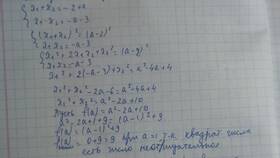 x₁+x₂=-2+a
x₁·x₂=-a-3
(x₁+x₂)²=(a-2)²
x₁x₂=-a-3
x₁²+2x₁x₂+x₂²=(a-2)²
x₁x₂=-a-3
x₁²+2(-a-3)+x₂²=a²-4a+4
x₁²+x₂²-2a-6=a²-4a+4
x₁²+x₂²=a²-2a+10
Пусть f(a)=a²-2a+10
a²-2a+1+9=(a-1)²+9
f(a)=(a-1)²+9
f(a)=0+9=9 при a=1, т.к. квадрат числа
есть число неотрицательное